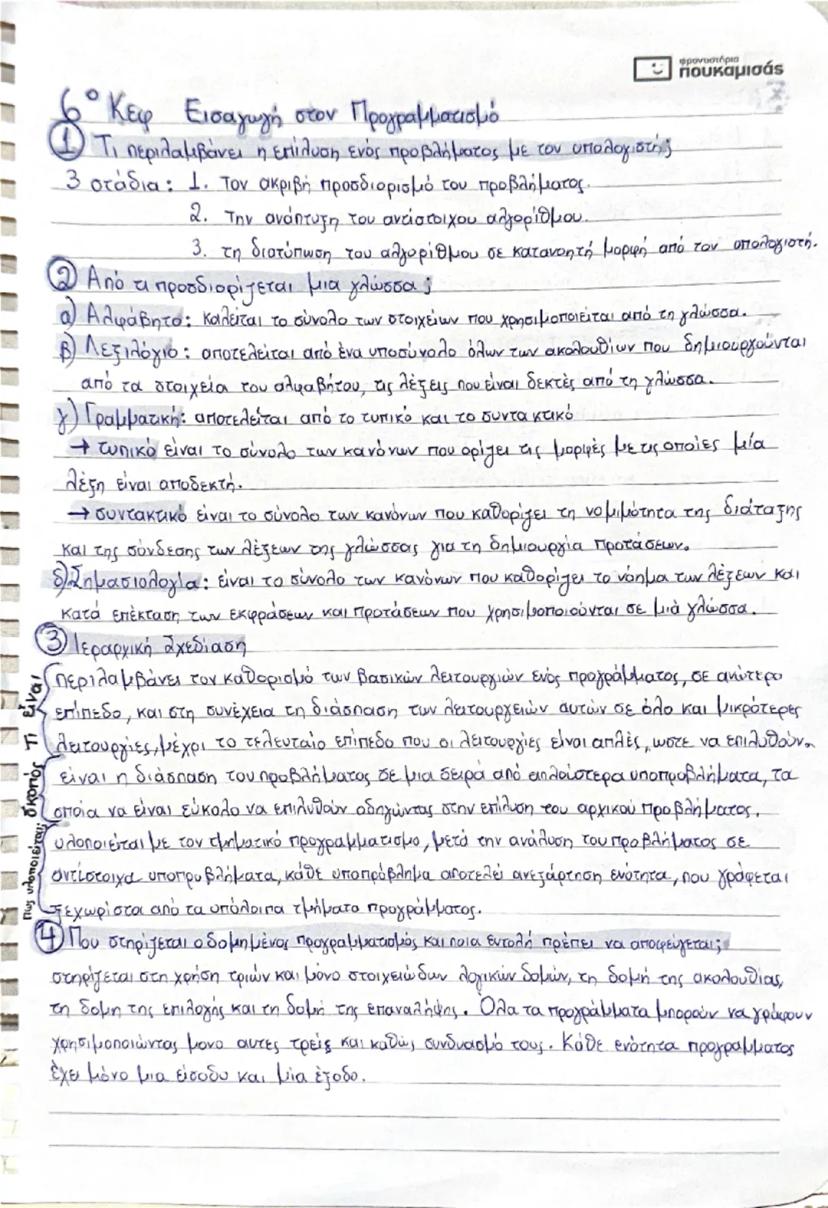 φροντιστήρια
πουκαμισάς
6º Κεφ Εισαγωγή στον Προγραμματισμό
① Τι περιλαμβάνει η επίλυση ενός προβλήματος με τον υπολογιστή;
3 στάδια: 1. Τον ακριβή προσδιορισμό του προβλήματος.
2. Την ανάπτυξη του αντίστοιχου αλγορίθμου.
3. τη διατύπωση του αλγορίθμου σε κατανοητή μορφή από τον υπολογιστή.
② Από τι προσδιορίζεται μια γλώσσα;
α) Αλφάβητο: καλείται το σύνολο των στοιχείων που χρησιμοποιείται από τη γλώσσα.
β) Λεξιλόγιο: αποτελείται από ένα υποσύνολο όλων των ακολουθίων που δημιουργούνται
από τα στοιχεία του αλφαβήτου, τις λέξεις που είναι δεκτές από τη γλώσσα.
γ) Γραμματική: αποτελείται από το τυπικό και το συντακτικό
→ τυπικό είναι το σύνολο των κανόνων που ορίζει τις μορφές με τις οποίες μία
λέξη είναι αποδεκτή.
→ συντακτικό είναι το σύνολο των κανόνων που καθορίζει τη νομιμότητα της διάταξης
και της σύνδεσης των λέξεων της γλώσσας για τη δημιουργία προτάσεων.
δ) Σημασιολογία: είναι το σύνολο των κανόνων που καθορίζει το νόημα των λέξεων και
κατά επέκταση των εκφράσεων και προτάσεων που χρησιμοποιούνται σε μιά γλώσσα.
③ Ιεραρχική Σχεδίαση
Τι είναι
περιλαμβάνει τον καθορισμό των βασικών λειτουργιών ενός προγράμματος, σε ανώτερο
επίπεδο, και στη συνέχεια τη διάσπαση των λειτουργειών αυτών σε όλο και μικρότερες
λειτουργίες, μέχρι το τελευταίο επίπεδο που οι λειτουργίες είναι απλές, ωστε να επιλυθούν.
σκοπός
είναι η διάσπαση του προβλήματος σε μια σειρά από απλούστερα υποπροβλήματα, τα
οποία να είναι εύκολο να επιλυθούν οδηγώντας στην επίλυση του αρχικού προβλήματος.
Πως υλοποιείται;
υλοποιείται με τον τμηματικό προγραμματισμο, μετά την ανάλυση του προβλήματος σε
αντίστοιχα υποπροβλήματα, κάθε υποπρόβλημα αποτελεί ανεξάρτηση ενότητα, που γράφεται
ξεχωριστα από τα υπόλοιπα τμήματα προγράμματος.
④ Που στηρίζεται ο δομημένος προγραμματισμός και ποια εντολή πρέπει να αποφεύγεται;
στηρίζεται στη χρήση τριών και μόνο στοιχειωδών λογικών δομών, τη δομή της ακολουθίας,
τη δομη της επιλογής και τη δομή της επαναλήψης. Όλα τα προγράμματα μπορούν να γράφουν
χρησιμοποιώντας μονο αυτες τρείς και καθώς συνδυασμό τους. Κάθε ενότητα προγράμματος
έχει μόνο μια είσοδο και μία έξοδο.